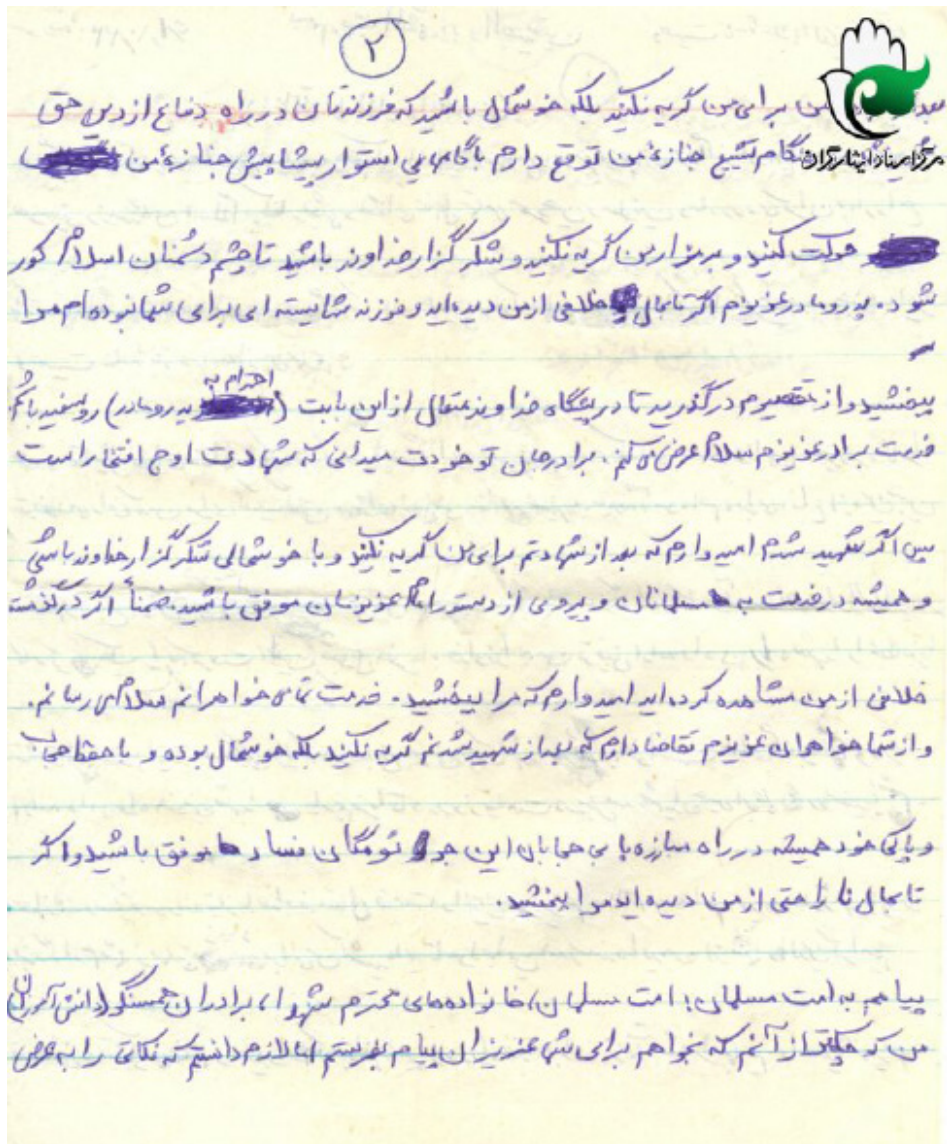 ۲
مرکز اسناد ایثارگران
من برای من گریه نکنید بلکه خوشحال باشید که فرزندتان در راه دفاع از دین حق
هنگام تشییع جنازهٔ من توقع دارم با گامهایی استوار پیشاپیش جنازهٔ من
حرکت کنید و بر مزار من گریه نکنید و شکرگزار خداوند باشید تا چشم دشمنان اسلام کور
شود. پدر و مادر عزیزم اگر تا بحال خلافی از من دیده اید و فرزند شایسته ای برای شما نبوده ام مرا
ببخشید و از تقصیرم درگذرید تا در پیشگاه خداوند متعال از این بابت (احترام به پدر و مادر) روسفید باشم
خدمت برادر عزیزم سلام عرض می کنم. برادر جان تو خودت میدانی که شهادت اوج افتخار است
پس اگر شهید شدم امیدوارم که بعد از شهادتم برای من گریه نکنید و با خوشحالی شکرگزار خداوند باشی
و همیشه در خدمت به مسلمانان و پیروی از دستورات امام عزیزمان موفق باشید. ضمناً اگر در گذشته
خلافی از من مشاهده کرده اید امیدوارم که مرا ببخشید. خدمت تمامی خواهرانم سلام می رسانم.
و از شما خواهران عزیزم تقاضا دارم که بعد از شهید شدنم گریه نکنید بلکه خوشحال بوده و با حفظ حجاب
و پاکی خود همیشه در راه مبارزه با بی حجابان این جرثومگان فساد موفق باشید و اگر
تا بحال ناراحتی از من دیده اید مرا ببخشید.
پیامم به امت مسلمان: امت مسلمان، خانواده های محترم شهدا، برادران همسنگر (دانش آموزان)
من کوچکتر از آنم که بخواهم برای شما عزیزان پیام بفرستم اما لازم دانستم که نکاتی را به عرض